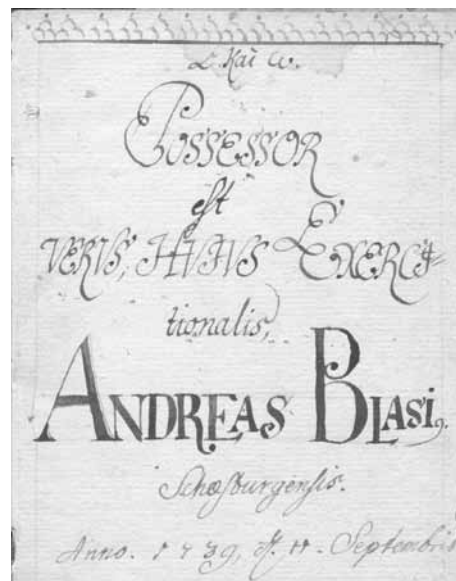 α. Καὶ ω.
POSSESSOR
est
VERVS, HVJVS EXERCI=
tionalis,
ANDREAS BLASI9.
Schæsburgensis.
Anno. 1739, d. 11. Septembris